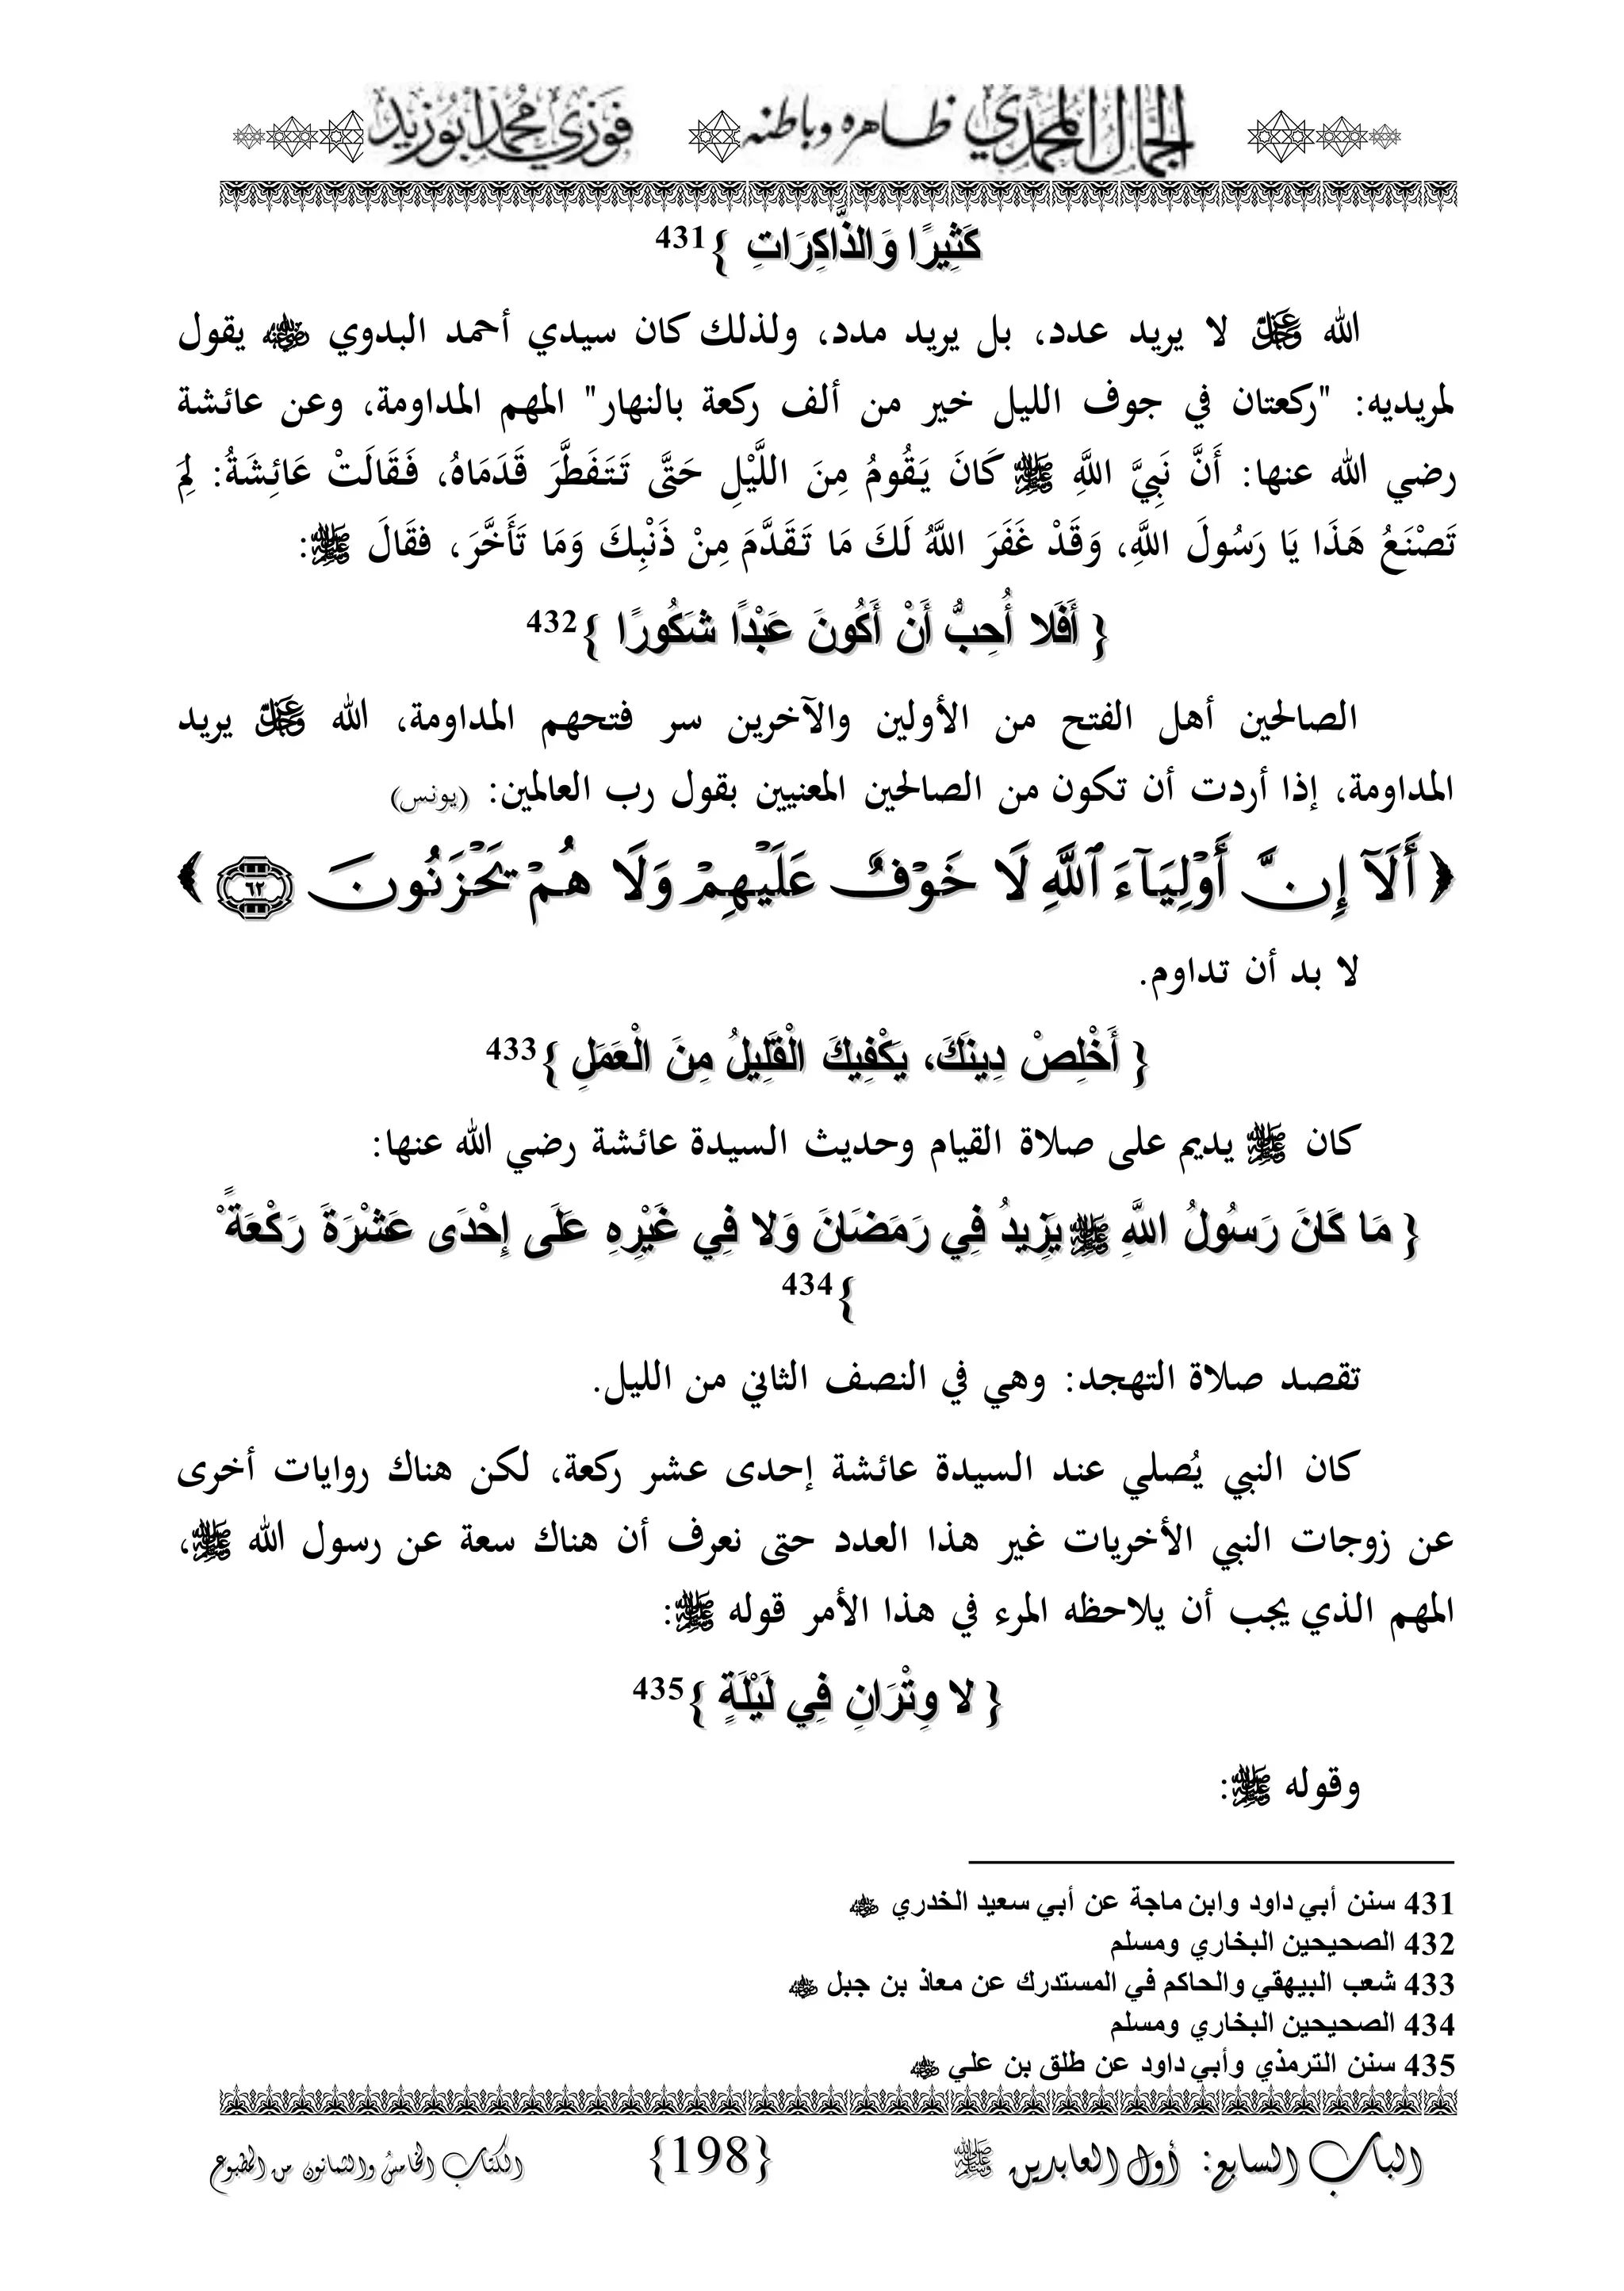 الجمال المحمدي ظاهره وباطنه فوزي محمد أبوزيد
كَثِيرًا وَالذَّاكِرَاتِ }431
الله ﷿ لا يريد عدد، بل يريد مدد، ولذلك كان سيدي أحمد البدوي ﵁ يقول
لمريديه: "ركعتان في جوف الليل خير من ألف ركعة بالنهار" المهم المداومة، وعن عائشة
رضي الله عنها: أَنَّ نَبِيَّ اللَّهِ ﷺ كَانَ يَقُومُ مِنَ اللَّيْلِ حَتَّى تَتَفَطَّرَ قَدَمَاهُ، فَقَالَتْ عَائِشَةُ: لِمَ
تَصْنَعُ هَذَا يَا رَسُولَ اللَّهِ، وَقَدْ غَفَرَ اللَّهُ لَكَ مَا تَقَدَّمَ مِنْ ذَنْبِكَ وَمَا تَأَخَّرَ، فقَالَ ﷺ:
{ أَفَلا أُحِبُّ أَنْ أَكُونَ عَبْدًا شَكُورًا }432
الصالحين أهل الفتح من الأولين والآخرين سر فتحهم المداومة، الله ﷿ يريد
المداومة، إذا أردت أن تكون من الصالحين المعنيين بقول رب العالمين: (يونس)
﴿ أَلَآ إِنَّ أَوْلِيَآءَ ٱللَّهِ لَا خَوْفٌ عَلَيْهِمْ وَلَا هُمْ يَحْزَنُونَ ٦٢ ﴾
لا بد أن تداوم.
{ أَخْلِصْ دِينَكَ، يَكْفِيكَ الْقَلِيلُ مِنَ الْعَمَلِ }433
كان ﷺ يديم على صلاة القيام وحديث السيدة عائشة رضي الله عنها:
{ مَا كَانَ رَسُولُ اللَّهِ ﷺ يَزِيدُ فِي رَمَضَانَ وَلا فِي غَيْرِهِ عَلَى إِحْدَى عَشْرَةَ رَكْعَةً ْ
}434
تقصد صلاة التهجد: وهي في النصف الثاني من الليل.
كان النبي يُصلي عند السيدة عائشة إحدى عشر ركعة، لكن هناك روايات أخرى
عن زوجات النبي الأخريات غير هذا العدد حتى نعرف أن هناك سعة عن رسول الله ﷺ،
المهم الذي يجب أن يلاحظه المرء في هذا الأمر قوله ﷺ:
{ لا وِتْرَانِ فِي لَيْلَةٍ }435
وقوله ﷺ:
431 سنن أبي داود وابن ماجة عن أبي سعيد الخدري ﵁
432 الصحيحين البخاري ومسلم
433 شعب البيهقي والحاكم في المستدرك عن معاذ بن جبل ﵁
434 الصحيحين البخاري ومسلم
435 سنن الترمذي وأبي داود عن طلق بن علي ﵁
الباب السابع: أول العابدين ﷺ {198} الكتاب الخامس والثمانون من المطبوع